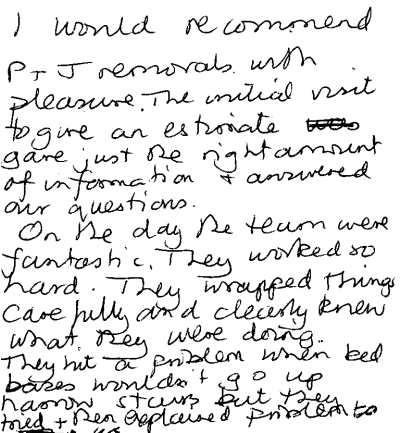 I would recommend
P + J removals with
pleasure. The initial visit
to give an estimate
gave just the right amount
of information + answered
our questions.
On the day the team were
fantastic. They worked so
hard. They wrapped things
carefully and clearly knew
what they were doing.
They hit a problem when bed
bases wouldn't go up
narrow stairs but they
tried + then explained problem to